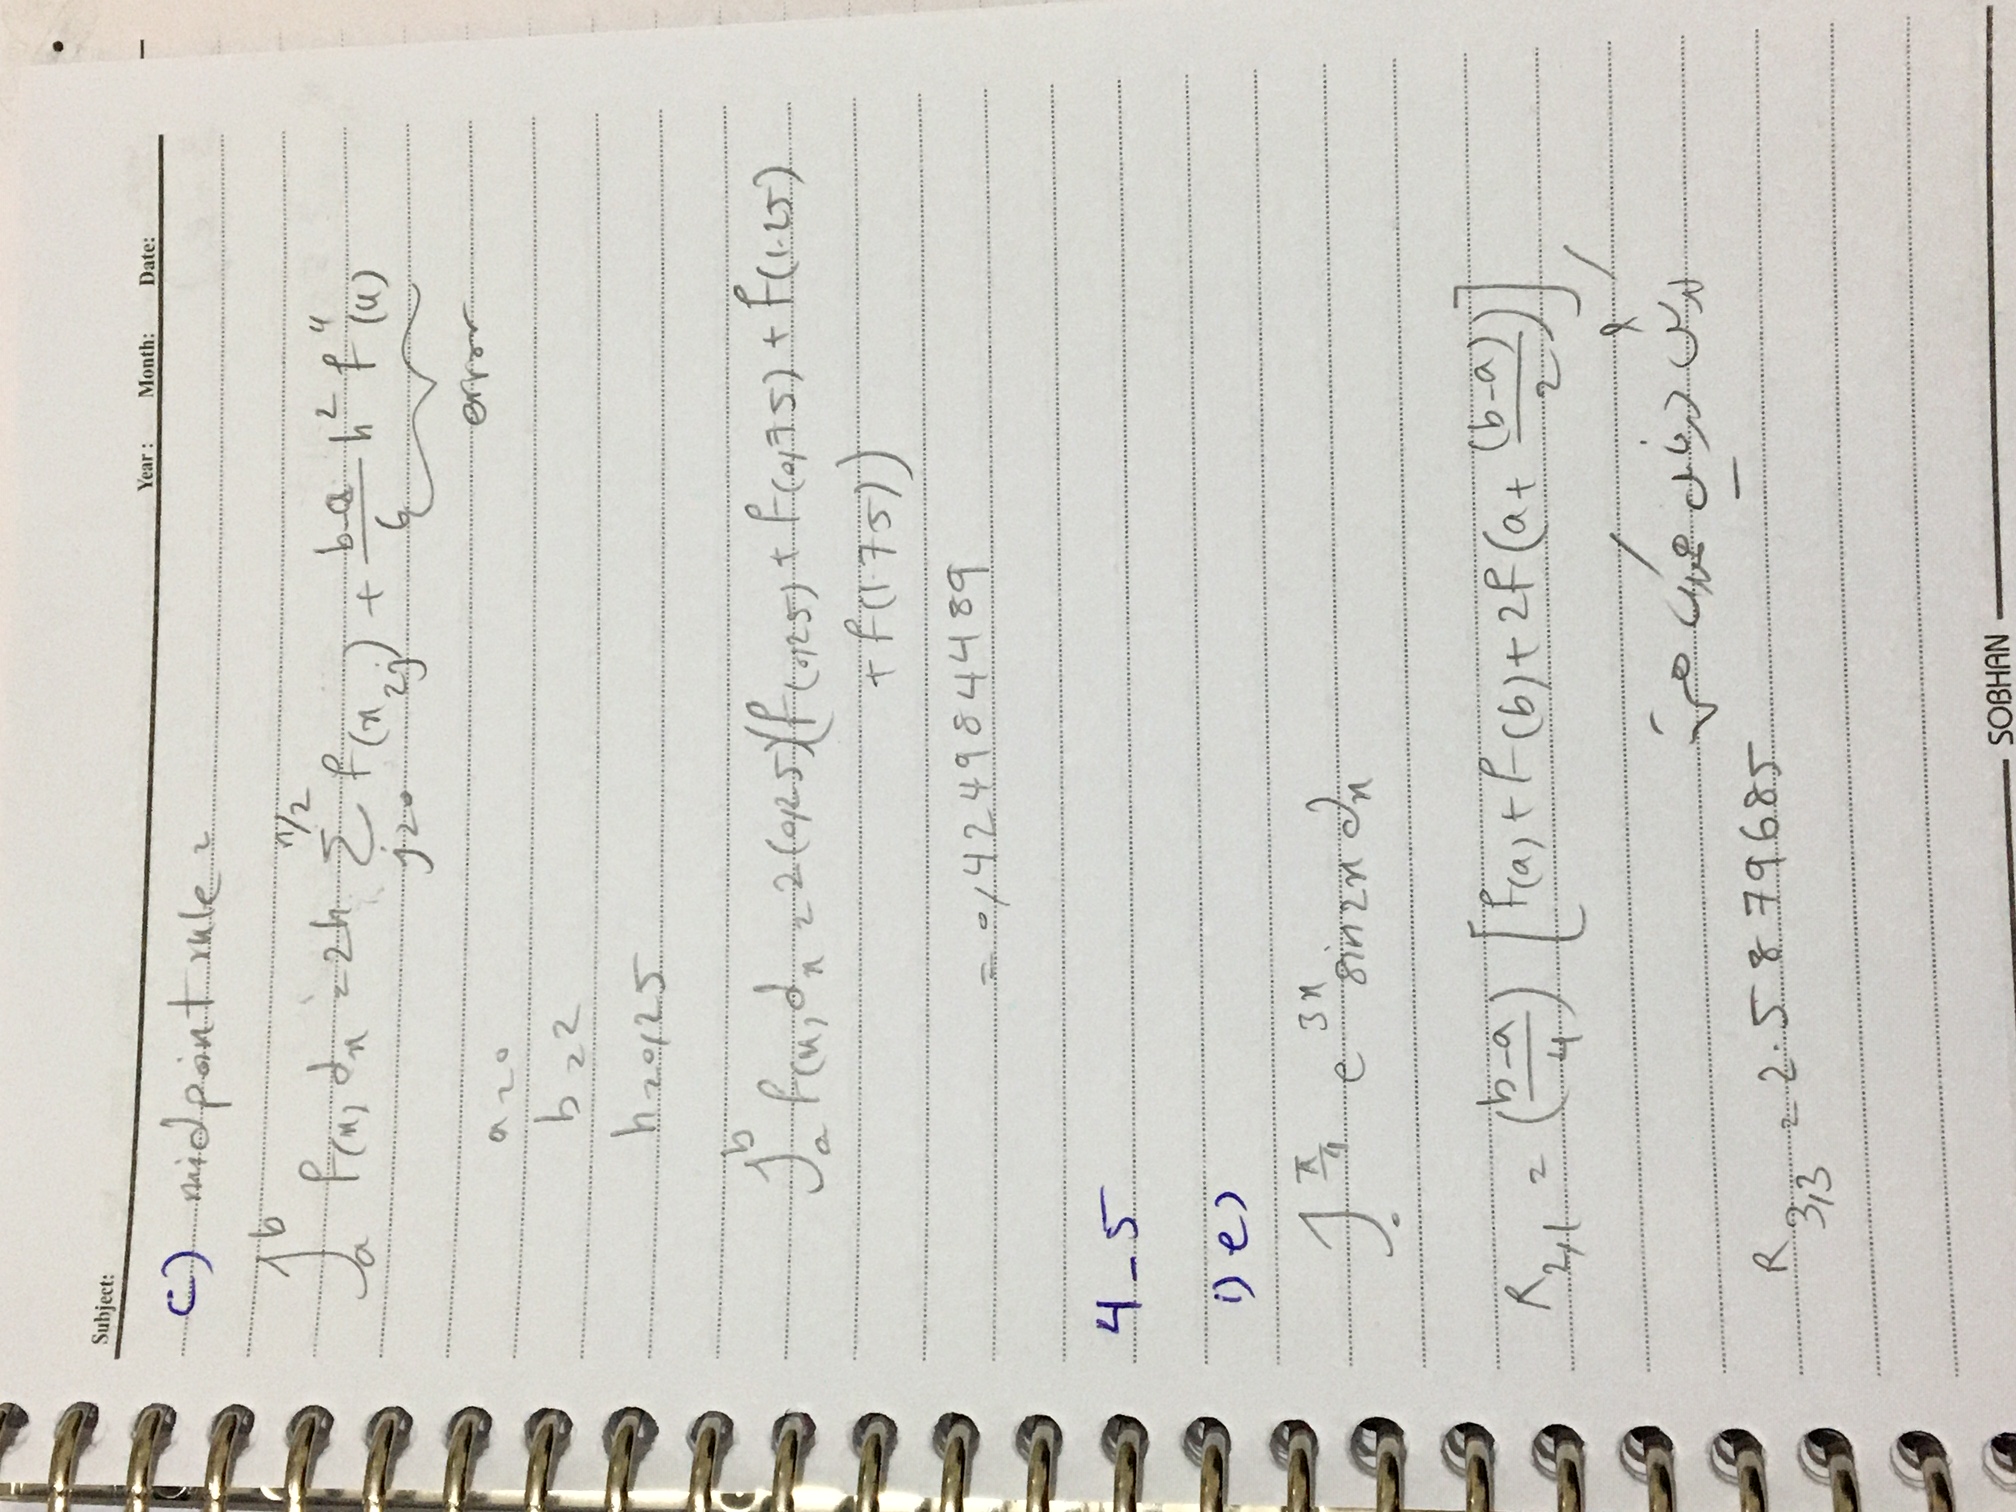 Subject:
Year : Month: Date:
c) midpoint rule =
∫_a^b f(x) dx = 2h Σ_{j=0}^{n/2} f(x_{2j}) + (b-a)/6 h² f''(u)
error
a=0
b=2
h=0,25
∫_a^b f(x) dx = 2(0,25)(f(0,25) + f(0,75) + f(1.25)
+ f(1.75))
= 0,424984489
4_5
1) e)
∫_0^{π/4} e^{3x} sin2x dx
R_{2,1} = ((b-a)/4) [f(a) + f(b) + 2f(a + (b-a)/2)]
در فایل
R_{3,3} = 2.5879685
SOBHAN